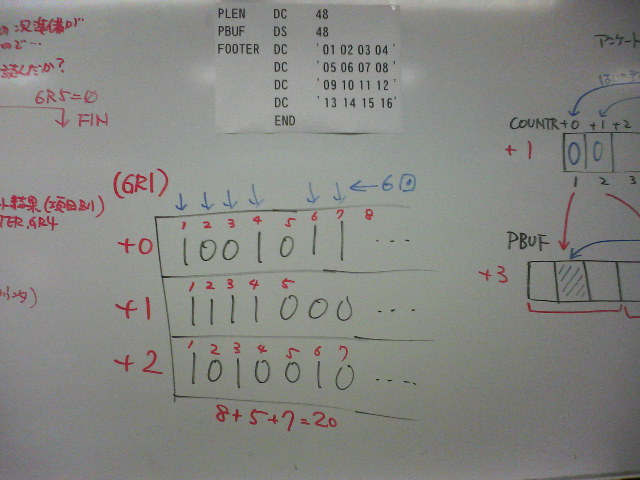 PLEN DC 48
PBUF DS 48
FOOTER DC '01 02 03 04 '
DC '05 06 07 08 '
DC '09 10 11 12 '
DC '13 14 15 16'
END
の次準備が
ので…
読んだか?
GR5=0
FIN
結果(項目別)
TER,GR4
(GR1)
←6回
1 2 3 4 5 6 7 8
+0 1001011 ...
1 2 3 4 5
+1 1111000 ...
1 2 3 4 5 6 7
+2 1010010 ....
8+5+7=20
アンケート
はい
COUNTR +0 +1 +2
+1 0 0
1 2 3
PBUF
+3